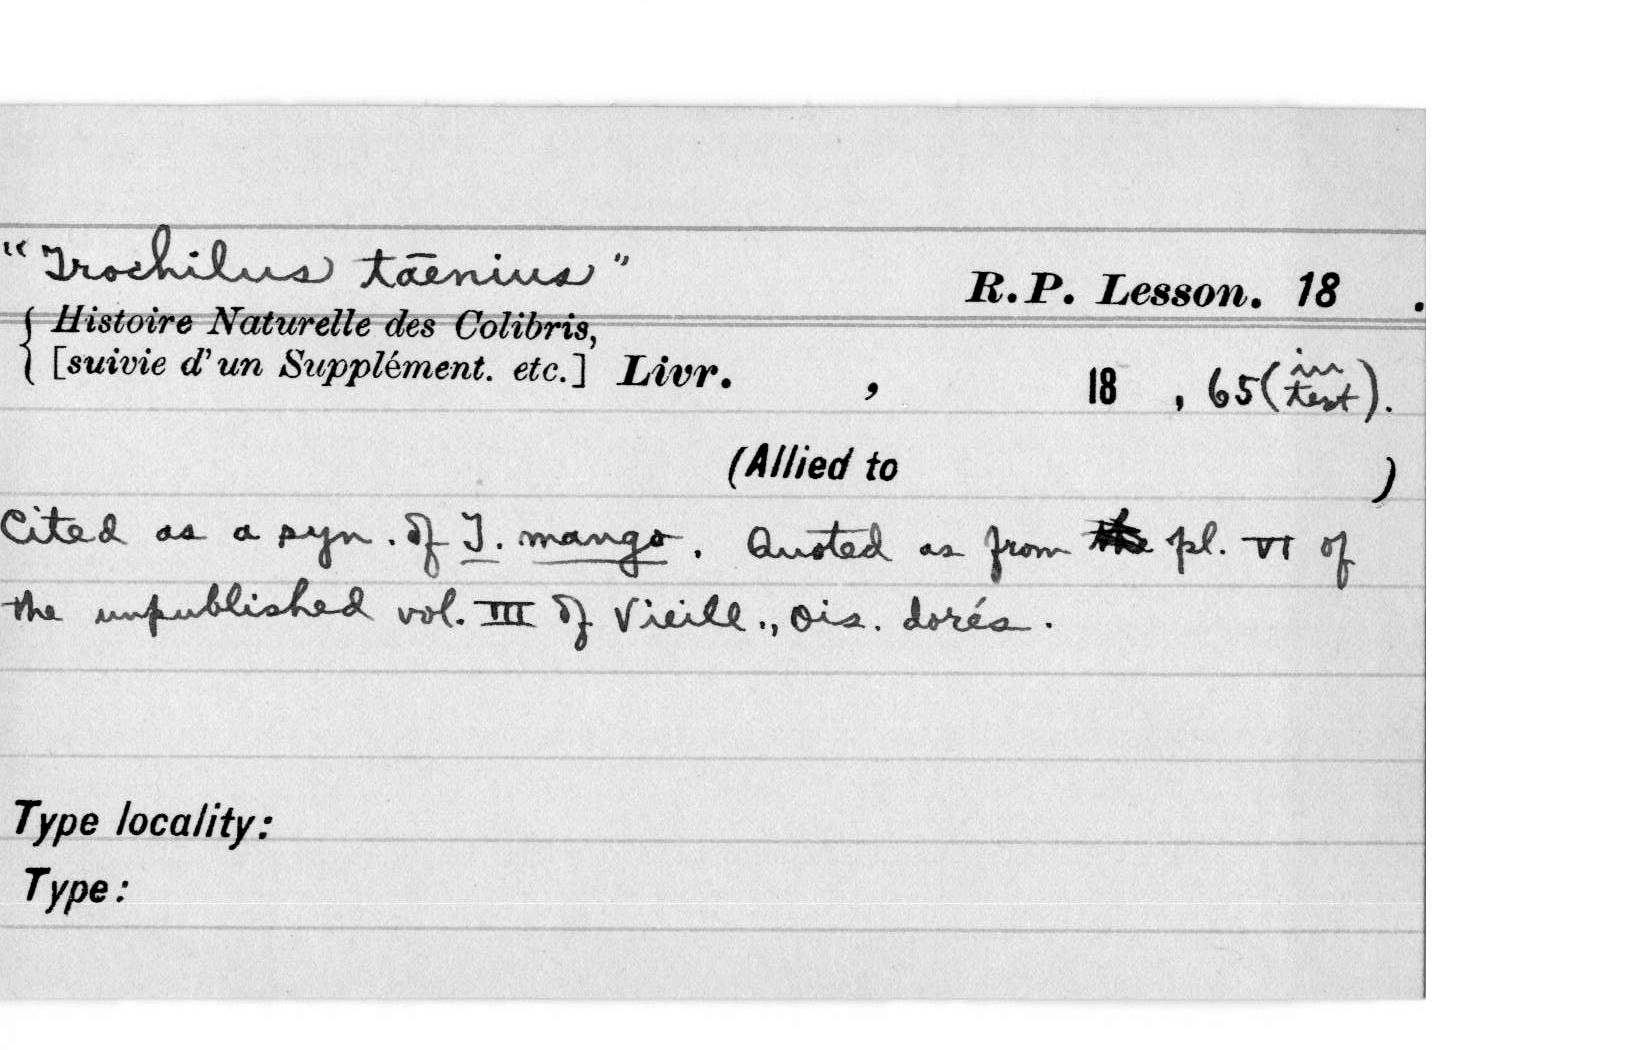 "Trochilus tāenius" R.P. Lesson. 18 .
{ Histoire Naturelle des Colibris,
[suivie d'un Supplément. etc.] Livr. , 18 , 65 (in text).
(Allied to )
Cited as a syn. of T. mango. Quoted as from pl. VI of
the unpublished vol. III of Vieill., Ois. dorés.
Type locality:
Type: